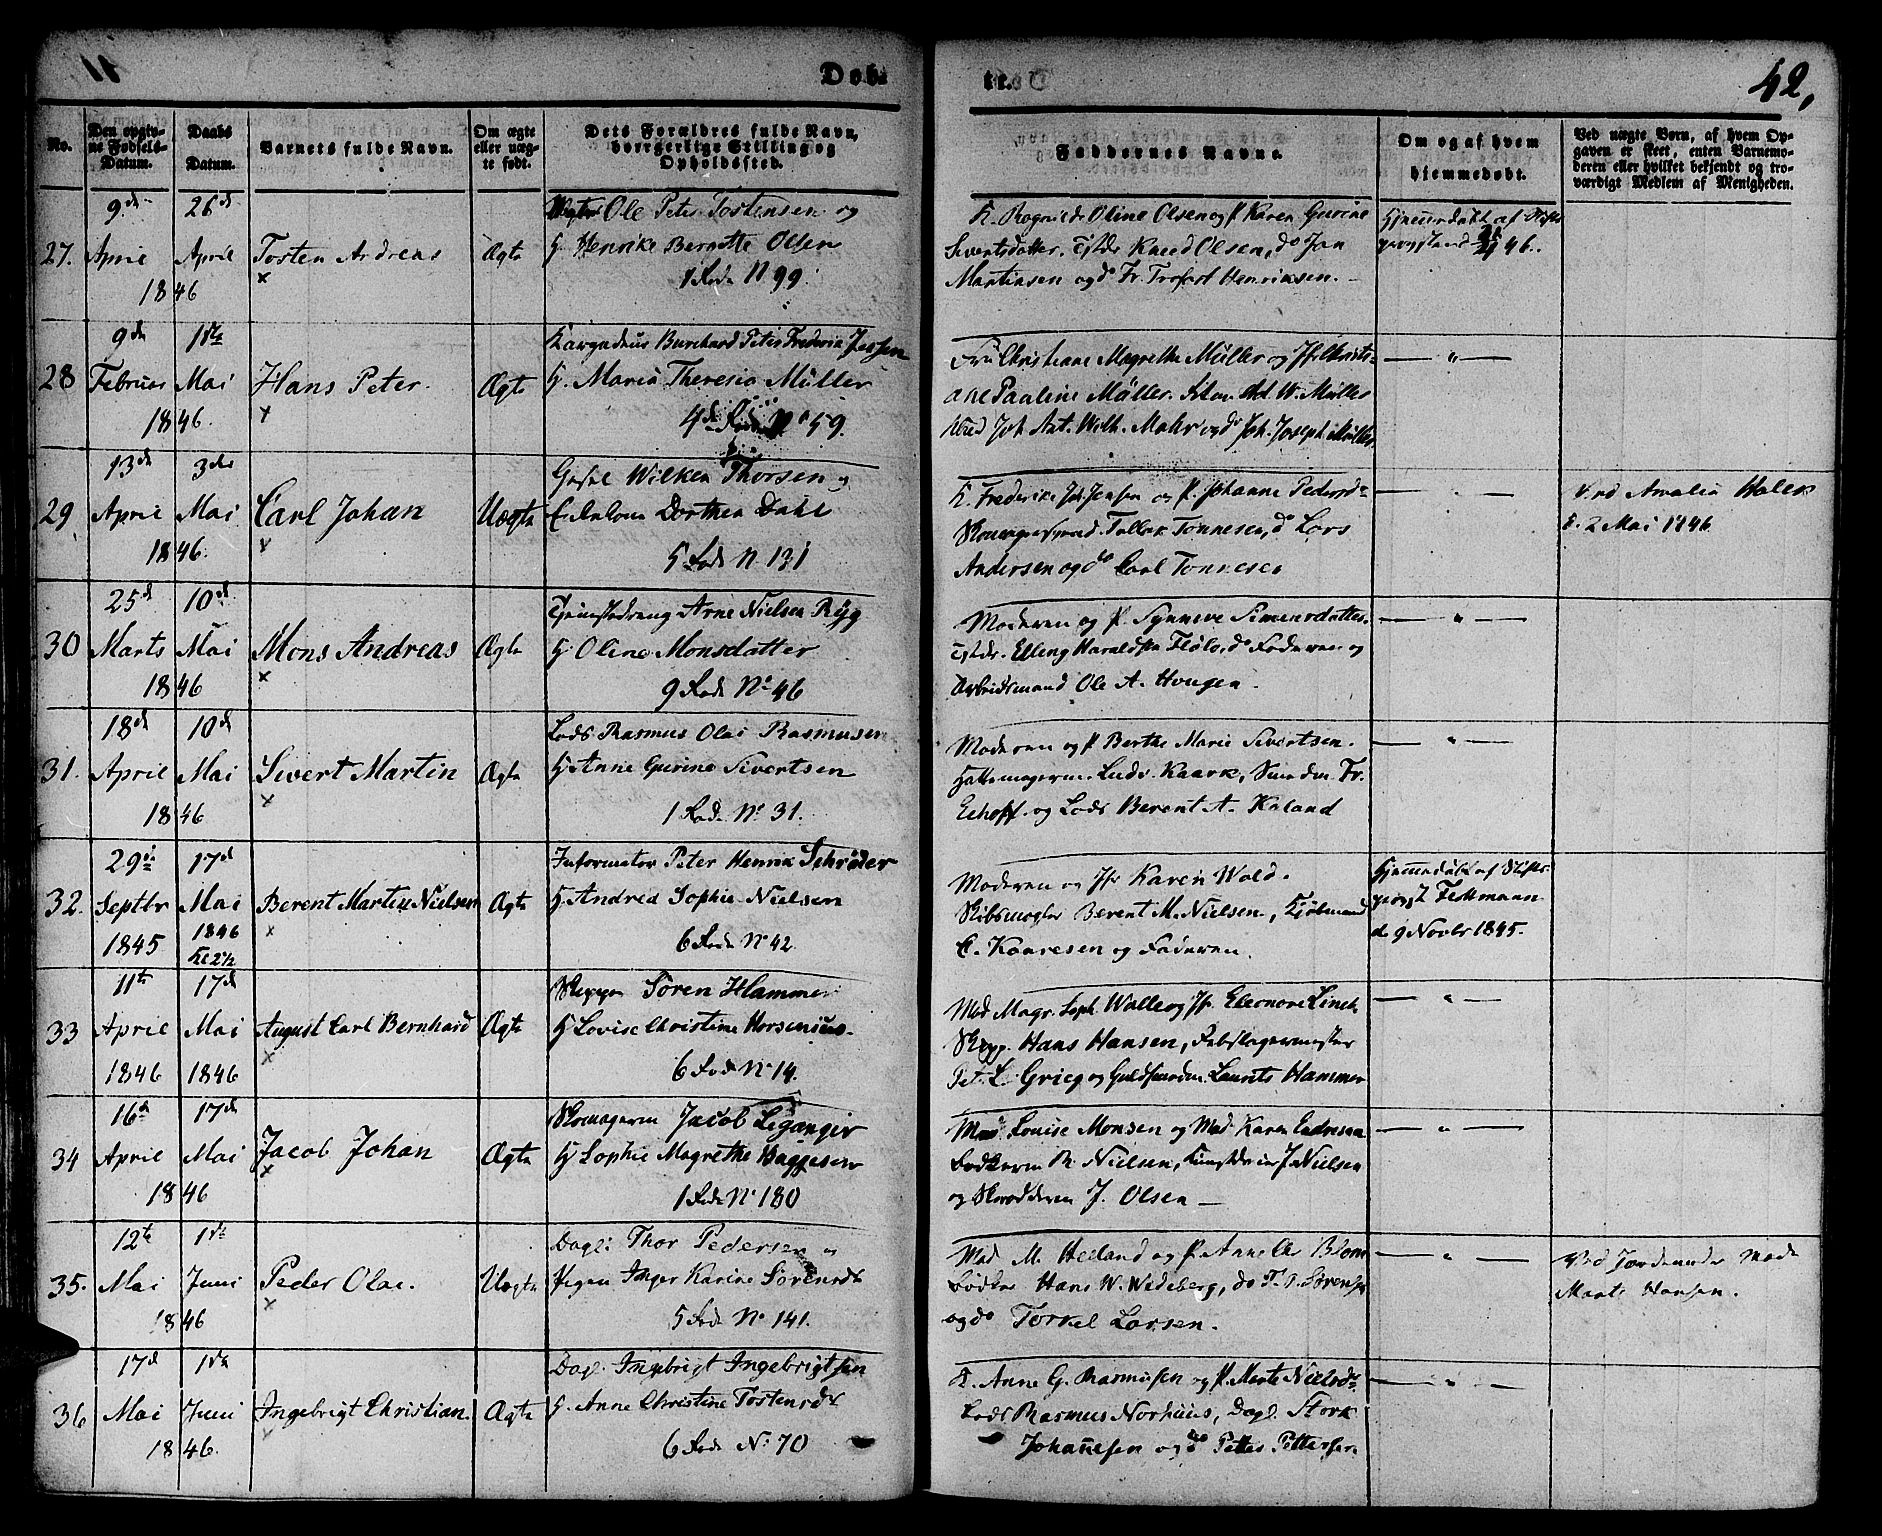 Døb
te.
42,
No.
Den opgiv-
ne Fødsels-
Datum.
Daabs
Datum.
Barnets fulde Navn.
Om ægte
eller uæg-
te født.
Dets Forældres fulde Navn,
borgerlige Stilling og
Opholdssted.
Faddernes Navne.
Om og af hvem
hjemmedøbt.
Ved uægte Børn, af hvem Op-
gaven er skeet, enten Barnemo-
deren eller hvilket bekjendt og tro-
værdigt Medlem af Menigheden.
27.
9de
April
1846
26de
April
Tosten Andreas
×
Ægte
Ole Peter Tostensen og
H. Henrike Bernette Olsen
1 Rode N 99.
K. Ragnilde Oline Olsen og P. Karen Gurine
Sivertsdatter. Tjstdr Knud Olsen, do Jan
Martinsen og do Fr. Trofast Henriksen.
Hjemmedøbt af
46.
28
9de
Februar
1846.
1ste
Mai
Hans Peter.
×
Ægte
Burchard Peter Frederik Jessen
H. Maria Theresia Müller
4de Rode No 59.
Fru Christiane Magrethe Müller og Jfr. Christi-
ane Pauline Müller. W. Müller
Joh. Ant. Wilh. Mohr og do Joh. Joseph Müller
— " —
29
13de
April
1846.
3die
Mai
Carl Johan
×
Uægte
Wilken Thorsen og
Dorthea Dahl
5 Rode N 131
K. Frederike Jensen og P. Johanne Pedersd.
Skomagersvend Tollak Tønnesen, do Lars
Andersen og do Carl Tønnesen
— " —
Ved Amalia
d. 2 Mai 1846
30
25de
Marts
1846
10de
Mai
Mons Andreas
×
Ægte
Tjenestedreng Arne Nielsen Ryg
H. Oline Monsdatter
9 Rode No 46
Moderen og P. Synneve Simensdatter.
Tjstdr. Elling Haraldsen Fløtø, do Faderen og
Arbeidsmand Ole A. Hougen.
— " —
31.
18de
April
1846
10de
Mai
Sivert Martin
×
Ægte
Lods Rasmus Olai Rasmusen
H. Anne Gurine Sivertsen
1 Rode No 31.
Moderen og P. Berthe Marie Sivertsen.
Hattemagerm. Ludv. Kaark, Smedm. Fr.
Eckoff. og Lods Berent A. Kaland
— " —
32.
29de
Septbr
1845
17de
Mai
1846
Kl 2½
Berent Martin Nielsen
×
Ægte
Informator Peter Henrik Schrøder
H. Andrea Sophie Nielsen
6 Rode No 42.
Moderen og Jfr Karen Wold.
Skibsmægler Berent M. Nielsen, Kjøbmand
C. Kaaresen og Faderen.
Hjemmedøbt af Stifts-
provst
d. 9 Novbr 1845.
33
11te
April
1846
17de
Mai
1846
August Carl Bernhard
×
Ægte
Skipper Søren Hammer
H. Lovise Christine Horsenius.
6 Rode No 14.
Mad Magr. Soph. Walle og Jfr. Eleonore Linch
Skipp. Hans Hansen, Feldtlagermester
Pet. L. Grieg og Guldsmedm. Laurits Hammer
— " —
34
16de
April
1846
17de
Mai
Jacob Johan
×
Ægte
Skomagerm Jacob Leganger
H. Sophie Magrethe Baggesen
1 Rode No 180
Mad Louise Monsen og Mad Karen Endresen
Bødkerm R. Nielsen, Kunstdreier J. Nielsen
og Skrædderm J. Olsen —
— " —
35.
12te
Mai
1846
1ste
Juni
Peder Olai.
×
Uægte
Dagl: Thor Pedersen og
Pigen Inger Karine Sørensdt
5 Rode No 141.
Mad M. Heiland og P. Anne Chr Blom
Bødker Hans W. Wedeberg, do T. P. Sørensen
og do Torkel Larsen.
— " —
Ved Jordemoder Mad.
Marte Hansen.
36
17de
Mai
1846.
1ste
Juni
Ingebrigt Christian.
×
Ægte
Dagl. Ingebrigt Ingebrigtsen
H. Anne Christine Tostensdt
6 Rode No 70
K. Anne G. Rasmusen og P. Marte Nielsdr.
Lods Rasmus Norhuus, Dagl. Stork
Johannesen og do Petter Pettersen
— " —